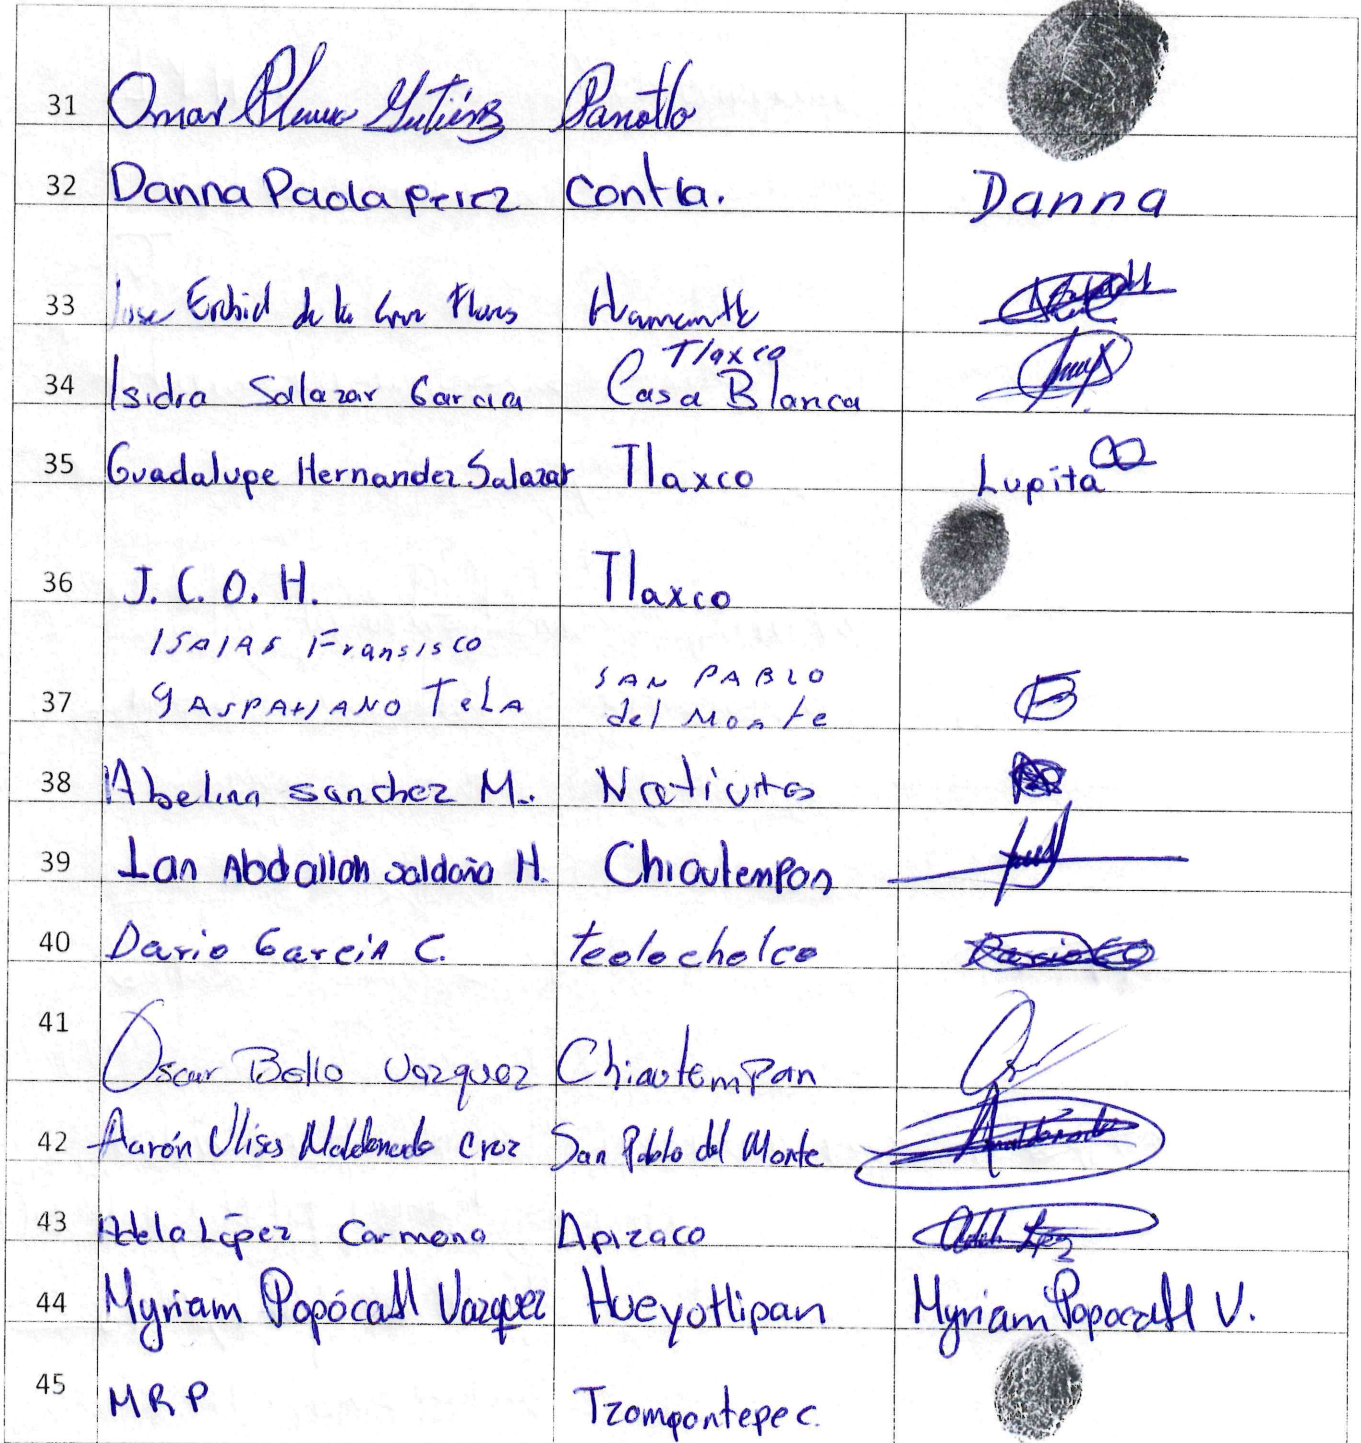 31 Omar Gutiérrez Panotla
32 Danna Paola perez Contla. Danna
33 Jose de la Cruz Flores Huamantla
Tlaxco
34 Isidra Salazar Garcia Casa Blanca
35 Guadalupe Hernandez Salazar Tlaxco Lupita
36 J. C. O. H. Tlaxco
ISAIAS Fransisco SAN PABLO
37 TeLA del Monte
38 Abelina sanchez M. Nativitas
39 Ian Abdallah saldaña H. Chiautempan
40 Dario GarciA C. teolocholco
41 Oscar Bello Vazquez Chiautempan
42 Aarón Ulises Maldonado Cruz San Pablo del Monte Amaldonado
43 Adela López Carmona Apizaco
44 Myriam Popócatl Vazquez Hueyotlipan Myriam Popocatl V.
45 MRP Tzompontepec.